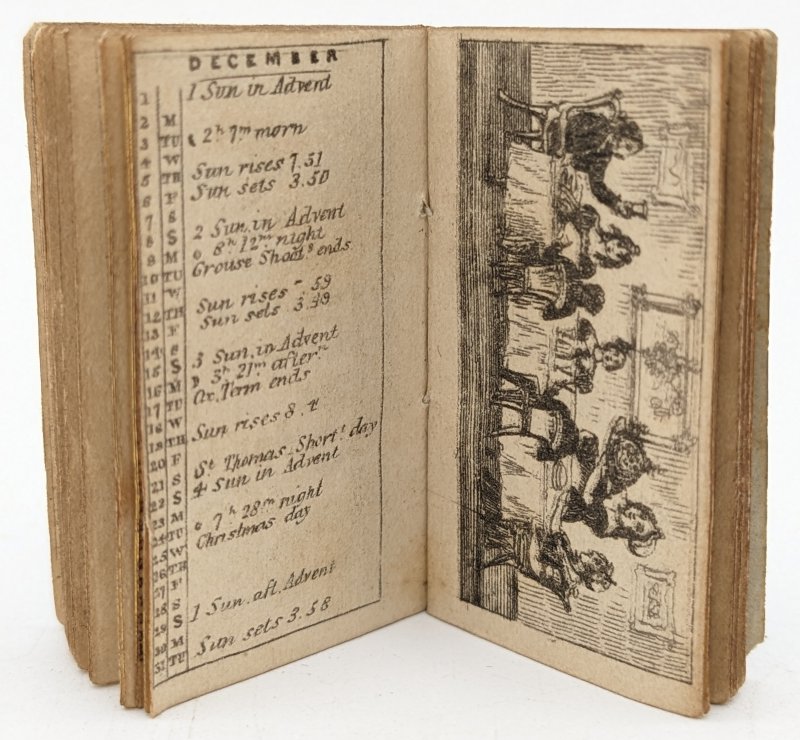 DECEMBER
1 1 Sun in Advent
2 M
3 TU 2ʰ 7ᵐ morn
4 W
5 TH Sun rises 7.51
6 F Sun sets 3.50
7 S
8 S 2 Sun. in Advent
9 M 8ʰ 12ᵐ night
10 TU Grouse Shootᵍ ends
11 W
12 TH Sun rises 59
13 F Sun sets 3.49
14 S
15 S 3 Sun. in Advent
16 M 3ʰ 21ᵐ afterⁿ
17 TU Ox. Term ends
18 W
19 TH Sun rises 8.4
20 F
21 S Sᵗ Thomas. Shortᵗ day
22 S 4 Sun in Advent
23 M
24 TU 7ʰ 28ᵐ night
25 W Christmas day
26 TH
27 F
28 S
29 S 1 Sun. aft. Advent
30 M
31 TU Sun sets 3.58